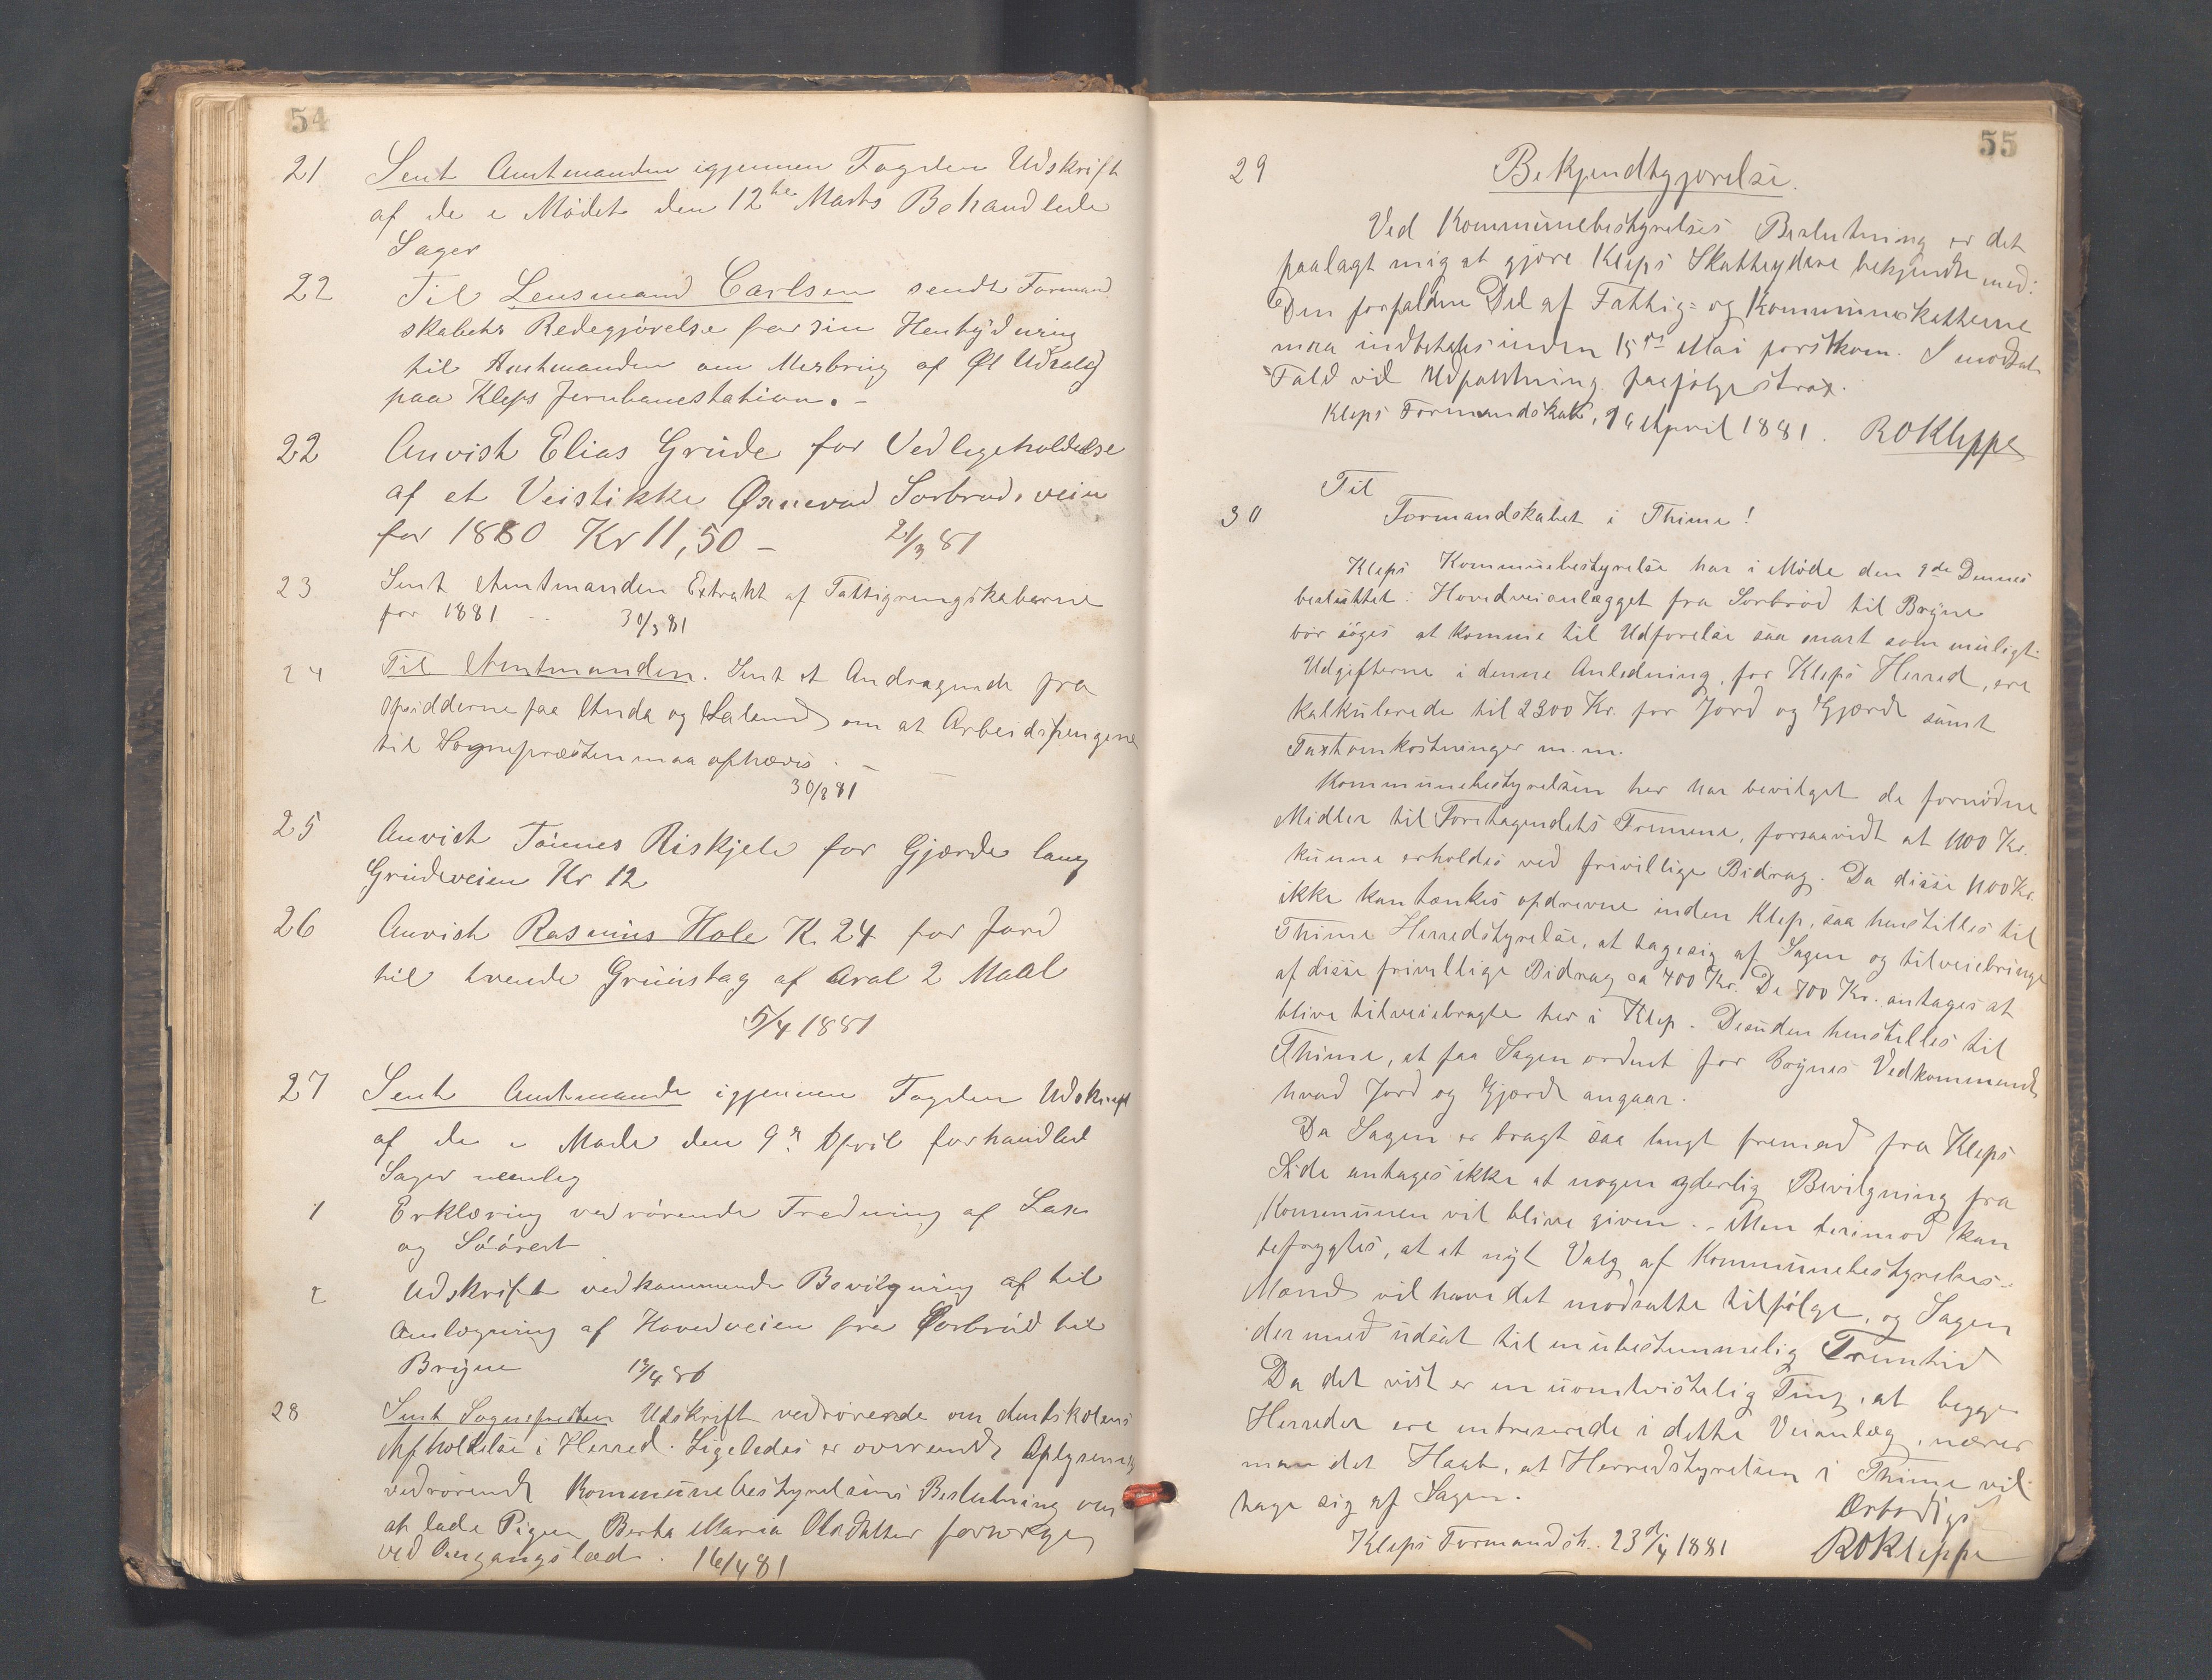 54
21 Sent Amtmanden igjennem Fogden Udskrift
af de i Mødet den 12te Marts Behandlede
Sager
22 Til Lensmand Carlsen sendt Formand
skabets Redegjørelse for sin Hentydning
til Amtmanden om Misbrug af Øl Udsalg
paa Kleps Jernbanestation. -
22 Anvist Elias Grude for Vedligeholdelse
af et Veistikke Øxnevad Sørbrøds veien
for 1880 Kr 11,50 - 21/3 81
23 Sent Amtmanden Extrakt af Fattigregnskaberne
for 1881 30/3 81
24 Til Amtmanden. Sent et Andragende fra
Opsidderne paa Anda og Laland om at Arbeidspengene
til Sognepræsten maa ophæves. -
30/3 81
25 Anvist Tønnes Riskjele for Gjærde lang
Grudeveien Kr 12
26 Anvist Rasmus Hole K. 24 for Jord
til tvende Gruustag af Aral 2 Maal
5/4 1881
27 Sent Amtmande igjennem Fogden Udskrift
af de i Møde den 9de April forhandled
Sager nemlig
1 Erklæring vedrørende Fredning af Lax
og Søørret
2 Udskrift vedkommende Bevilgning af til
Anlægning af Hovedveien fra Sørbrød til
Bryne 12/4 86
28 Sent Sognepresten Udskrift vedrørende omskolens
Afholdelse i Herred. Ligeledes er oversendt Oplysning
vedrørende Kommunebestyrelsens Beslutning om
at lade Pigen Berta Maria Olsdatter forsørge
ved Omgangslæd. 16/4 81
55
29 Bekjendtgjørelse.
Ved Kommunebestyrelses Beslutning er det
paalagt mig at gjøre Kleps Skatteydere bekjendte med:
Den forfaldne Del af Fattig- og Kommuneskatterne
maa indbetales inden 15de Mai førstkom. I modsat
Fald vil Udpantning paafølge strax.
Kleps Formandskab, April 1881. R O Kleppe
Til
30 Formandskabet i Thime!
Kleps Kommunebestyrelse har i Møde den 9de Dennes
besluttet: Hovedveianlægget fra Sørbrød til Bryne
bør søges at komme til Udførelse saa snart som muligt.
Udgifterne i denne Anledning, for Kleps Herred, ere
kalkulerede til 2300 Kr. for Jord og Gjærde samt
Taxtomkostninger m. m.
Kommunebestyrelsen her har bevilget de fornødne
Midler til Foretagendets Fremme, forsaavidt at 1100 Kr.
kunne erholdes ved frivillige Bidrag. Da disse 1100 Kr.
ikke kan tænkes opdrevne inden Klep, saa henstilles til
Thime Herredstyrelse, at tage sig af Sagen og tilveiebringe
af disse frivillige Bidrag ca 400 Kr. De 700 Kr. antages at
blive tilveiebragte her i Klep. Desuden henstilles til
Thime, at faa Sagen ordnet for Brynes Vedkommende
hvad Jord og Gjærde angaar.
Da Sagen er bragt saa langt fremad fra Kleps
Side antages ikke at nogen yderlig Bevilgning fra
Kommunen vil blive given. - Men derimod kan
befrygtes, at et nyt Valg af Kommunebestyrelses-
Mænd vil have det modsatte tilfølge, og Sagen
dermed udsat til en ubestemmelig Fremtid
Da det vist er en uomtvistelig Ting, at begge
Herreder ere intreserede i dette Veianlæg, nærer
man det Haab, at Herredstyrelsen i Thime vil
tage sig af Sagen. Ærbødigst
Kleps Formandsk. 23de/4 1881 R O Kleppe